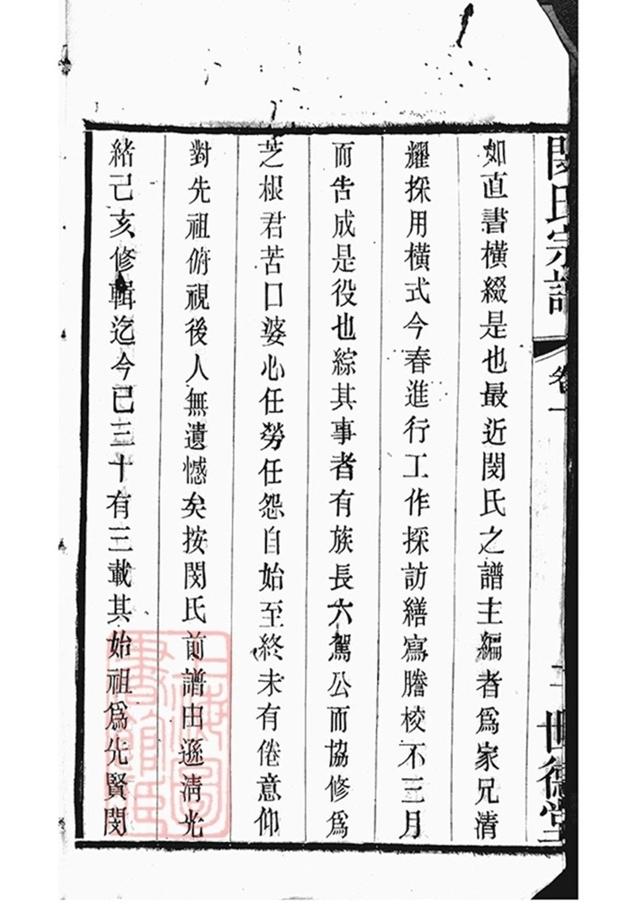 閔氏宗譜
卷一
二
世德堂
如直書橫綴是也最近閔氏之譜主編者爲家兄清
耀採用橫式今春進行工作採訪繕寫謄校不三月
而告成是役也綜其事者有族長六駕公而協修爲
芝根君苦口婆心任勞任怨自始至終未有倦意仰
對先祖俯視後人無遺憾矣按閔氏前譜由遜清光
緒己亥修輯迄今已三十有三載其始祖爲先賢閔
上海圖書館藏